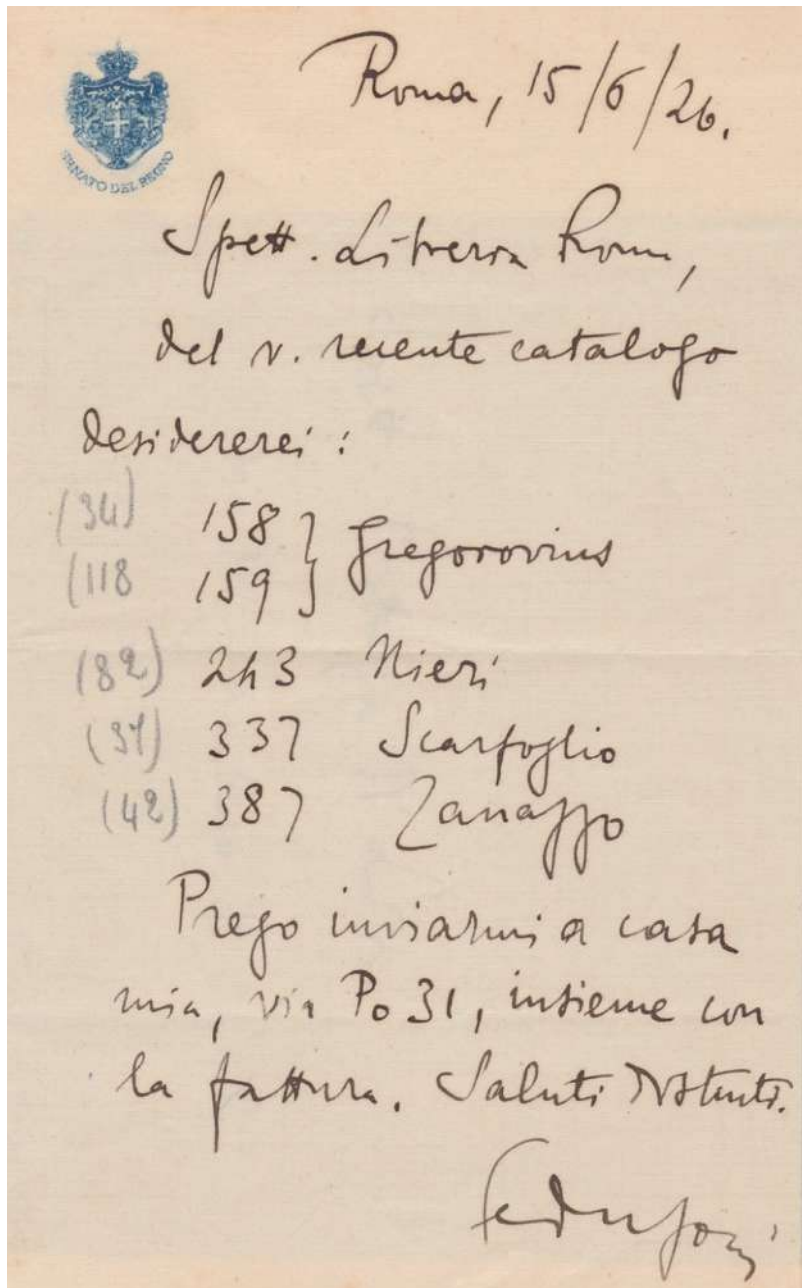 SENATO DEL REGNO
Roma, 15/6/26.
Spett. Libreria Roma,
del v. recente catalogo
desidererei:
(34) 158 } Gregorovius
(118 159
(82) 243 Nieri
(37) 337 Scarfoglio
(42) 387 Zanazzo
Prego inviarmi a casa
mia, via Po 31, insieme con
la fattura. Saluti distinti.
Federzoni